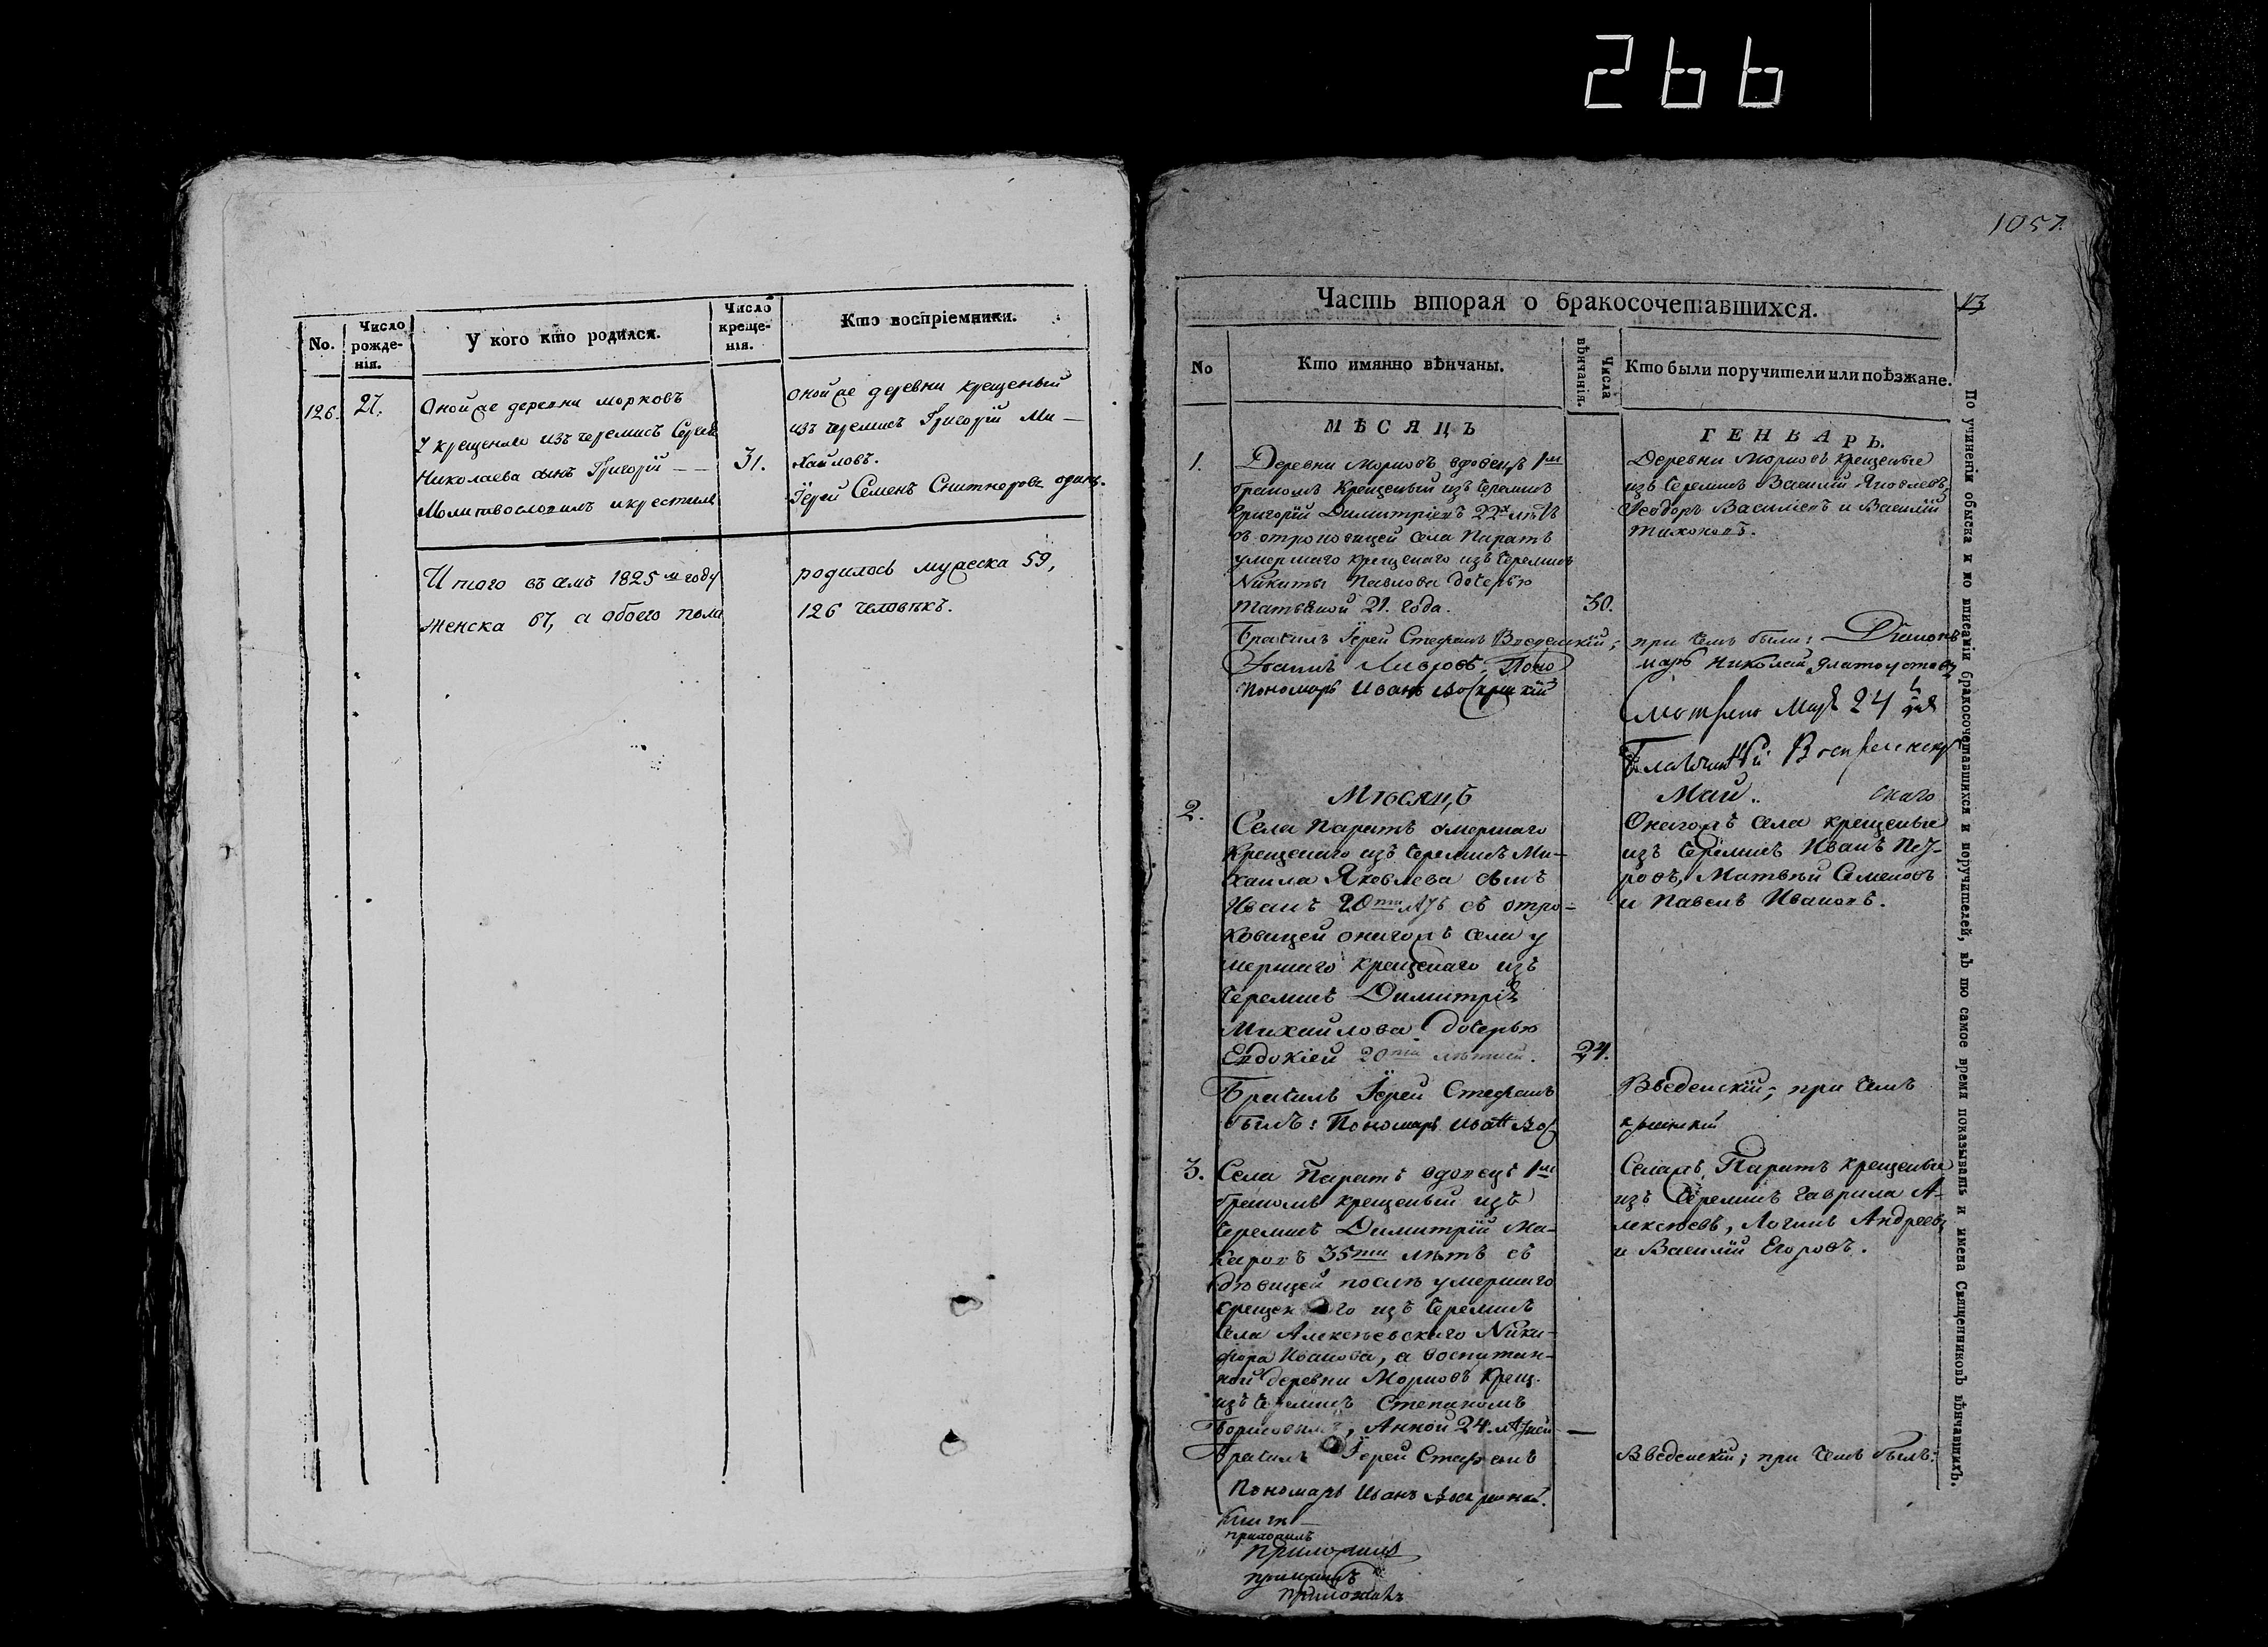 266
No.
Число рожде-нія.
У кого кто родился.
Число креще-нія.
Кто воспріемники.
126.
27.
Оной же деревни Морковъ
У крещенаго изъ черемисъ Сергея
Николаева сынъ Григорій —
Молитвословилъ и крестилъ
31.
оной же деревни крещеный
изъ черемисъ Григорій Ми-
хайловъ.
Іерей Семенъ одинъ.
Итого въ семъ 1825 м году
женска 67, а обоего пола
родилось мужеска 59,
126 человѣкъ.
1057.
13
Часть вторая о бракосочетавшихся.
No
Кто имянно вѣнчаны.
Числа вѣнчанія.
Кто были поручители или поѣзжане.
МѢСЯЦЪ
ГЕНВАРЬ.
1.
Деревни Морковъ вдовецъ 1м
бракомъ крещеный изъ черемисъ
Григорій Димитріевъ 22х лѣтъ
съ отроковицей села Паратъ
умершаго крещенаго изъ черемисъ
Никиты Павлова дочерью
Татьяной 21. года.
30.
Деревни Морковъ крещеные
изъ черемисъ Василій Яковлевъ,
Ѳеодоръ Васильевъ и Василій
Тихоновъ.
Брачилъ Іерей Стефанъ Введенскій;
при чемъ были: Діаконъ
Іоаннъ Лавровъ, Поно
марь Николай Златоустовъ
Пономарь Иванъ Воскрескій
Смотрено Маія 24 дня
Благочинный Воскресенскій
Мѣсяцъ
Май.
2.
Села Паратъ умершаго
крещенаго изъ черемисъ Ми-
хаила Яковлева сынъ
Иванъ 20ти лѣтъ съ отро-
ковицей онагожъ села у
мершаго крещенаго изъ
черемисъ Димитрія
Михайлова дочерью
Евдокіей 20ти лѣтней.
24.
Онагожъ села крещеные
изъ черемисъ Иванъ Пет-
ровъ, Матвѣй Семеновъ
и Павелъ Ивановъ.
Брачилъ Іерей Стефанъ
Введенскій; при чемъ
былъ: Пономарь Иванъ Вос
кресенскій
3.
Села Паратъ вдовецъ 1м
бракомъ крещеный изъ
черемисъ Димитрій Ма-
каровъ 35ти лѣтъ съ
вдовицей послѣ умершаго
крещенаго изъ черемисъ
села Алексѣевскаго Ники-
фора Иванова, а воспитан-
ной деревни Морковъ крещ.
изъ черемисъ Степаномъ
Борисовымъ, Анной 24. лѣтней —
Селажъ Паратъ крещеные
изъ черемисъ Гаврила А-
лексѣевъ, Логинъ Андреевъ
и Василій Егоровъ.
Брачилъ Іерей Стефанъ
Введенскій; при чемъ былъ:
Пономарь Иванъ Воскресенскій.
приложилъ
приложилъ
приложилъ
По учиненіи обыска и по вписаніи бракосочетавшихся и поручителей, въ то самое время показывать и имена Священниковъ вѣнчавшихъ.